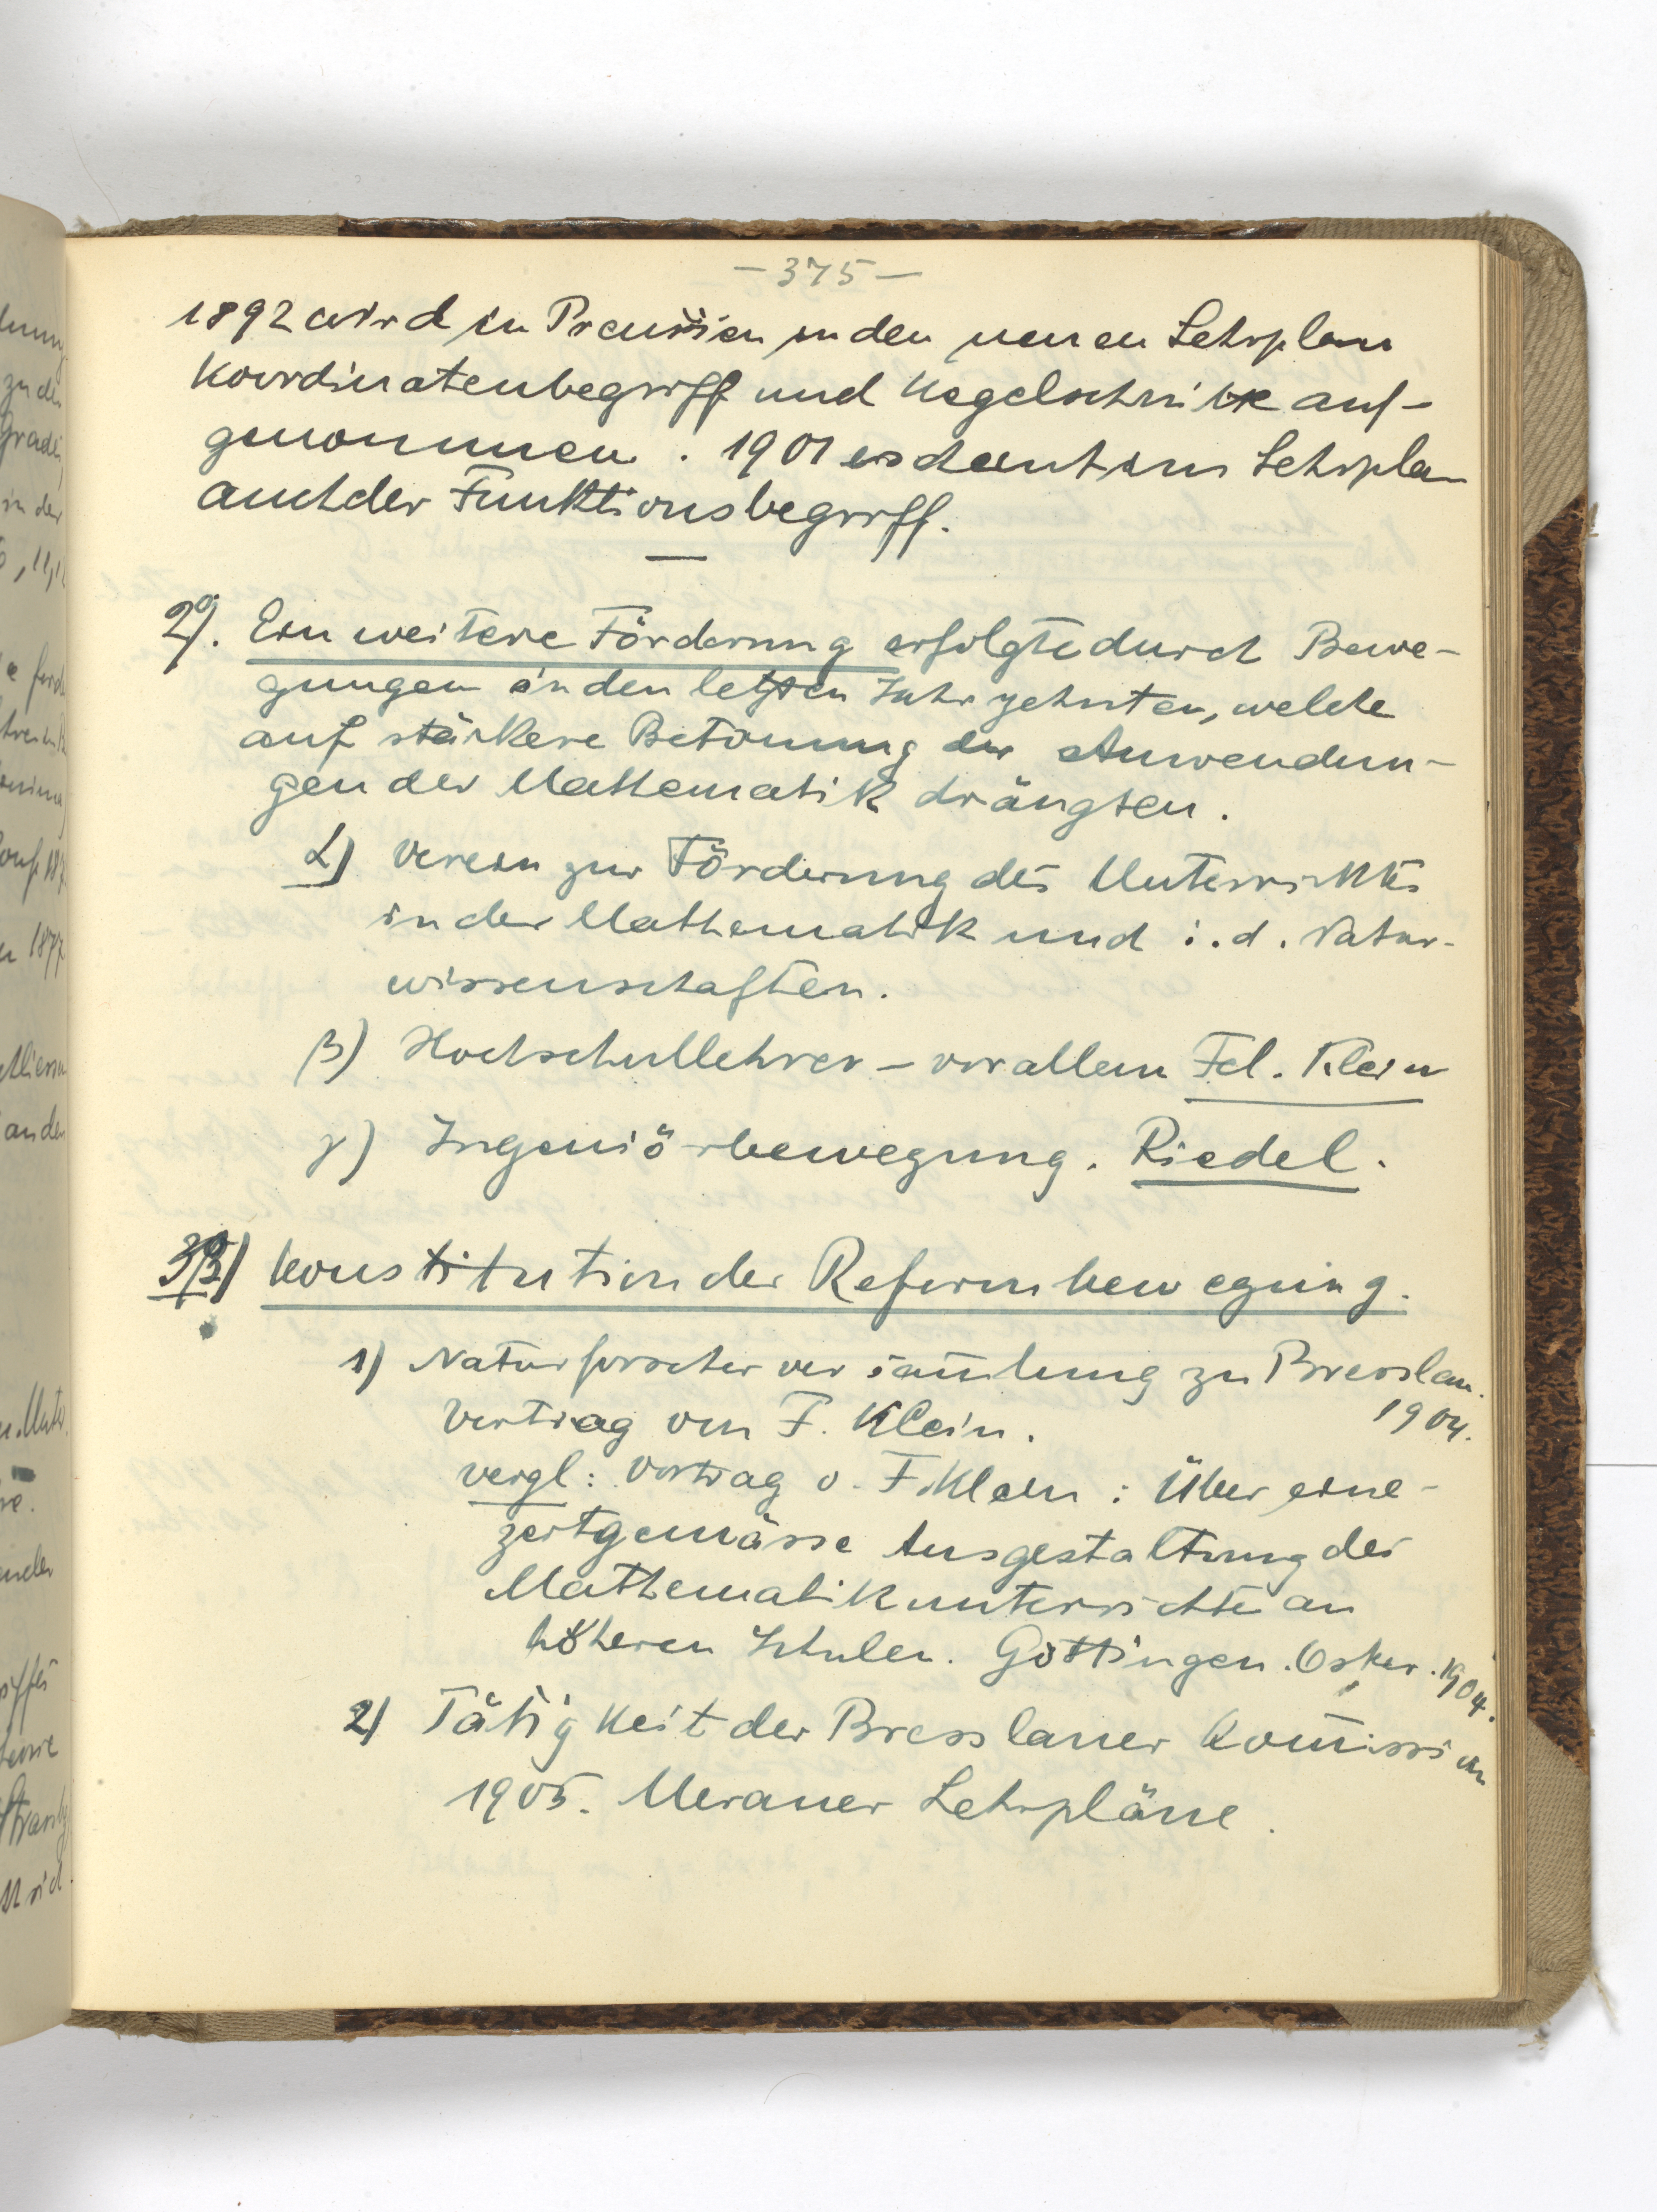 -375-
1892 wird in Preussen in den neuen Lehrplan
Koordinatenbegriff und Kegelschnitte auf-
genommen. 1901 erscheint im Lehrplan
auch der Funktionsbegriff.
2). Ein weitere Förderung erfolgte durch Bewe-
gungen in den letzten Jahrzehnten, welche
auf stärkere Betonung der Anwendun-
gen der Mathematik drängten.
α) Verein zur Förderung des Unterrichts
in der Mathematik und i. d. Natur-
wissenschaften.
β) Hochschullehrer – vor allem Fel. Klein
γ) Ingeniörbewegung. Riedel.
3) Konstitution der Reformbewegung.
1) Naturforscherversam̄lung zu Bresslau.
1904.
Vortrag von F. Klein.
vergl: Vortrag v. F. Klein: Über eine
zeitgemässe Ausgestaltung des
Mathematikunterrichts an
höheren Schulen. Göttingen. 1904.
2) Tätigkeit der Bresslauer Kom̄ission
1905. Meraner Lehrpläne.